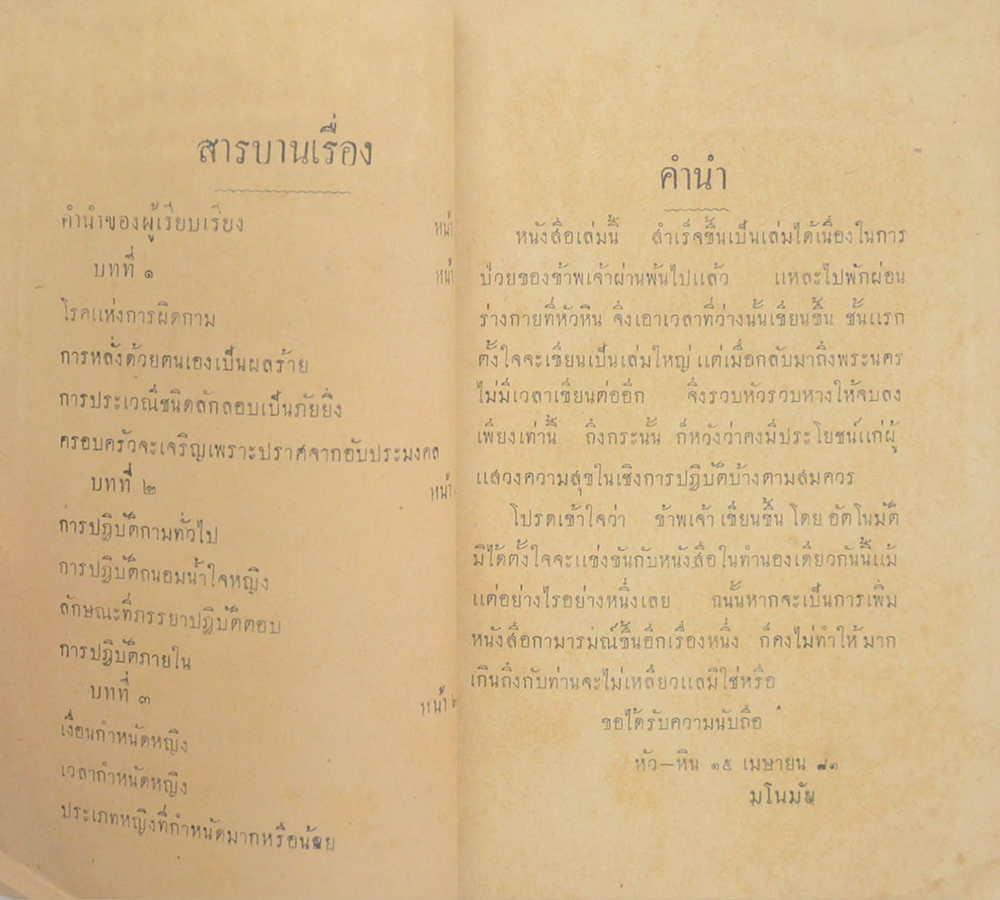 สารบานเรื่อง
คำนำของผู้เรียบเรียง หน้า
บทที่ ๑ หน้า
โรคแห่งการผิดกาม
การหลั่งด้วยตนเองเป็นผลร้าย
การประเวณีชนิดลักลอบเป็นภัยยิ่ง
ครอบครัวจะเจริญเพราะปราศจากอัปประมงคล
บทที่ ๒ หน้า
การปฏิบัติกามทั่วไป
การปฏิบัติถนอมน้ำใจหญิง
ลักษณะที่ภรรยาปฏิบัติตอบ
การปฏิบัติภายใน
บทที่ ๓ หน้า
เงื่อนกำหนัดหญิง
เวลากำหนัดหญิง
ประเภทหญิงที่กำหนัดมากหรือน้อย
คำนำ
หนังสือเล่มนี้ สำเร็จขึ้นเป็นเล่มได้เนื่องในการ
ป่วยของข้าพเจ้าผ่านพ้นไปแล้ว แหละไปพักผ่อน
ร่างกายที่หัวหิน จึงเอาเวลาที่ว่างนั้นเขียนขึ้น ชั้นแรก
ตั้งใจจะเขียนเป็นเล่มใหญ่ แต่เมื่อกลับมาถึงพระนคร
ไม่มีเวลาเขียนต่ออีก จึงรวบหัวรวบหางให้จบลง
เพียงเท่านี้ ถึงกระนั้น ก็หวังว่าคงมีประโยชน์แก่ผู้
แสวงความสุขในเชิงการปฏิบัติบ้างตามสมควร
โปรดเข้าใจว่า ข้าพเจ้า เขียนขึ้น โดย อัตโนมัติ
มิได้ตั้งใจจะแข่งขันกับหนังสือในทำนองเดียวกันนี้แม้
แต่อย่างไรอย่างหนึ่งเลย ฉนั้นหากจะเป็นการเพิ่ม
หนังสือกามารมณ์ขึ้นอีกเรื่องหนึ่ง ก็คงไม่ทำให้ มาก
เกินถึงกับท่านจะไม่เหลียวแลมิใช่หรือ
ขอได้รับความนับถือ
หัว—หิน ๑๕ เมษายน ๘๑
มโนมัย